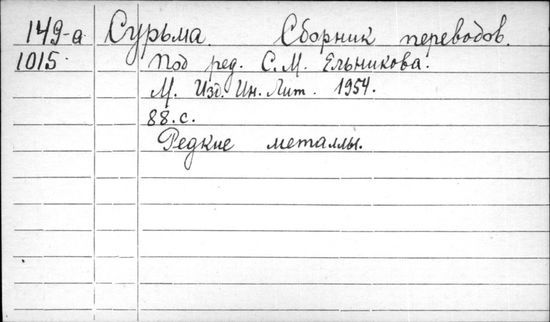 149-а Сурьма. Сборник переводов.
1015. Под ред. С. М. Ельникова.
М. Изд. Ин. Лит. 1954.
88. с.
Редкие металлы.